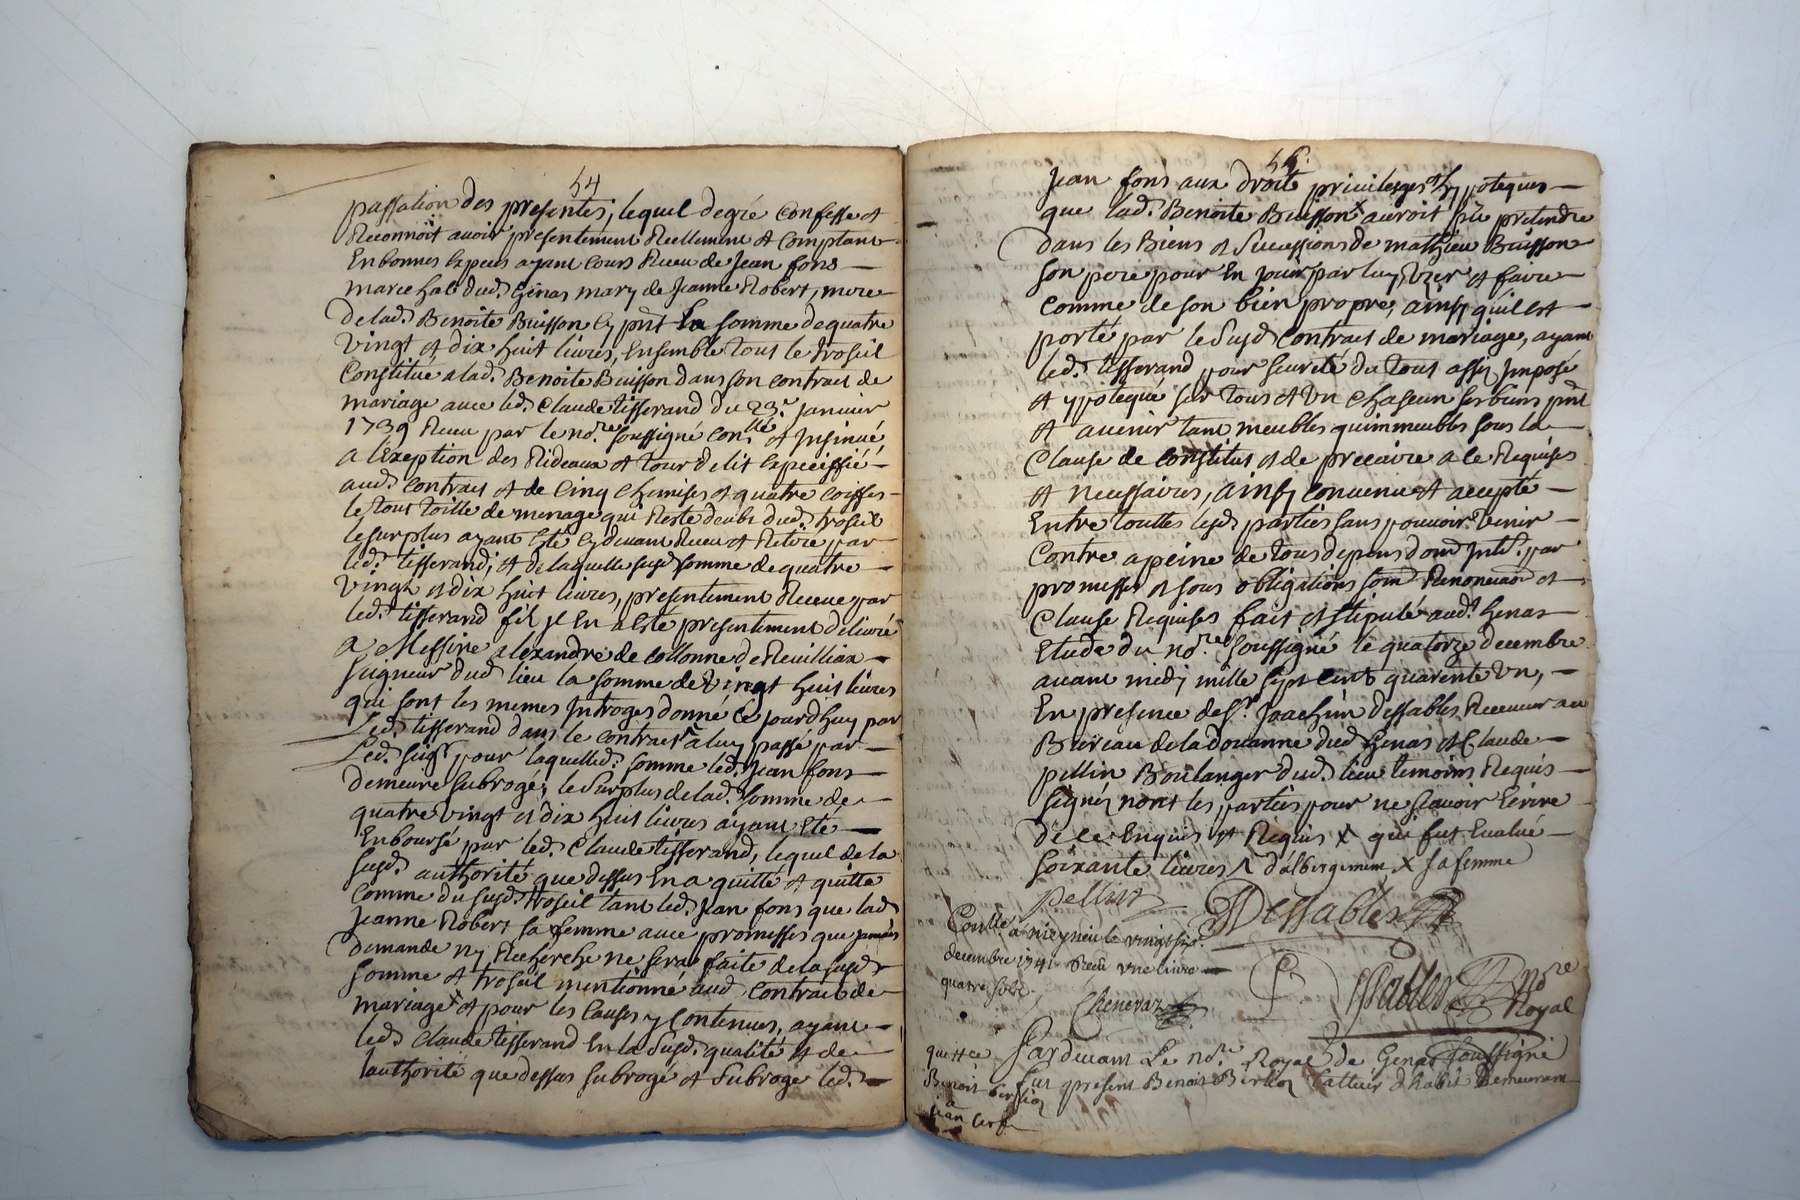 54
passation des presentes, lequel degré confesse et
Reconnoit avoir presentement Reellement et comptant
En bonnes Especes ayant cours Receu de Jean fons
marechal dud. Genas mary de Jeanne Robert, mere
de lad. Benoite Buisson Cy pnt la somme de quatre
vingt et dix huit livres, Ensemble tous le troseil
Constitue a lad. Benoite Buisson dans son contract de
mariage avec led. Claude tisserand du 23.e Janvier
1739 Receu par le no.re soussigné con.llé et Insinué
a l'Exeption des Rideaux et tour de lit Expeciffié
aud. contract et de Cinq chemises et quatre coiffes
le tout toille de menage qui Reste deubt dud. troseil
le surplus ayant Esté Cy devant Receu et Retiré par
led. tisserand, et de laquelle susd. somme de quatre
vingt et dix huit livres, presentement Receue par
led. tisserand fil il En a Esté presentement delivré
a Messire alexandre de Collonne de Reuilliax
seigneur dud lieu la somme de vingt huit livres
qui sont les memes Introges donné Ce jourdhuy par
Led. tisserand dans le contract a luy passé par
Led. seigr pour laquelle d. somme led. Jean fons
demeure subrogé, le surplus de lad. somme de
quatre vingt et dix huit livres ayant Eté
Emboursé par led. Claude tisserand, lequel de la
susd. authorité que dessus En a quitté et quitte
Comme du susd. troseil tant led. Jean fons que lad
Jeanne Robert sa femme avec promesses que jamais
demande ny Recherche ne sera faite de la susd
somme et troseil mentionné aud contract de
mariage x et pour les Causes y Contenues, ayant
led. Claude tisserand En la susd. qualité et de
lauthorité que dessus subrogé et subroge led.
55.
Jean fons aux droits privileges et hypoteques
que lad. Benoite Buisson x auroit pû pretendre
dans les Biens et Successions de mathieu Buisson
son pere pour En jouir par luy User et faire
comme de son bien propre, ainsy quil est
porté par le Susd contract de mariage, ayant
led. tisserand pour seureté du tout assy Imposé
et ypotequé sur tous et Un chascun ses biens pnt
et avenir tant meubles quimmeubles sous la
Clause de constitut et de precaire a ce Requises
et necessaires, ainsy convenu et accepté
Entre touttes lesd parties sans pouvoir Venir
Contre a peine de tous depens dom Intt. par
promesses et sous obligations soum Renonciaon et
Clause Requises fait et stipulé aud. Genas
Etude du no.re soussigné le quatorze decembre
avant midy mille sept cent quarente Un,
En presence de Sr. Joachim Dessables Receveur au
Bureau de la douanne dud Genas et Claude
pellin Boulanger dud. lieu temoins Requis
signés nont les parties pour ne sçavoir Ecrire
de ce Enquis et Requis x qui fut Evalué
soixante livres / d'albergement x sa femme
pellin Dessables
Con.llé a mieyzieu le vingt six.
decembre 1741 Receu une livre
quatre sols
Cheneraz Dessables no.re
Royal
quittce
Benoit Berlioz
a
Jean Cerf
Pardevant Le no.re Royal de Genas soussigné
fut present Benoit Berlioz Tallieur d'habit Demeurant